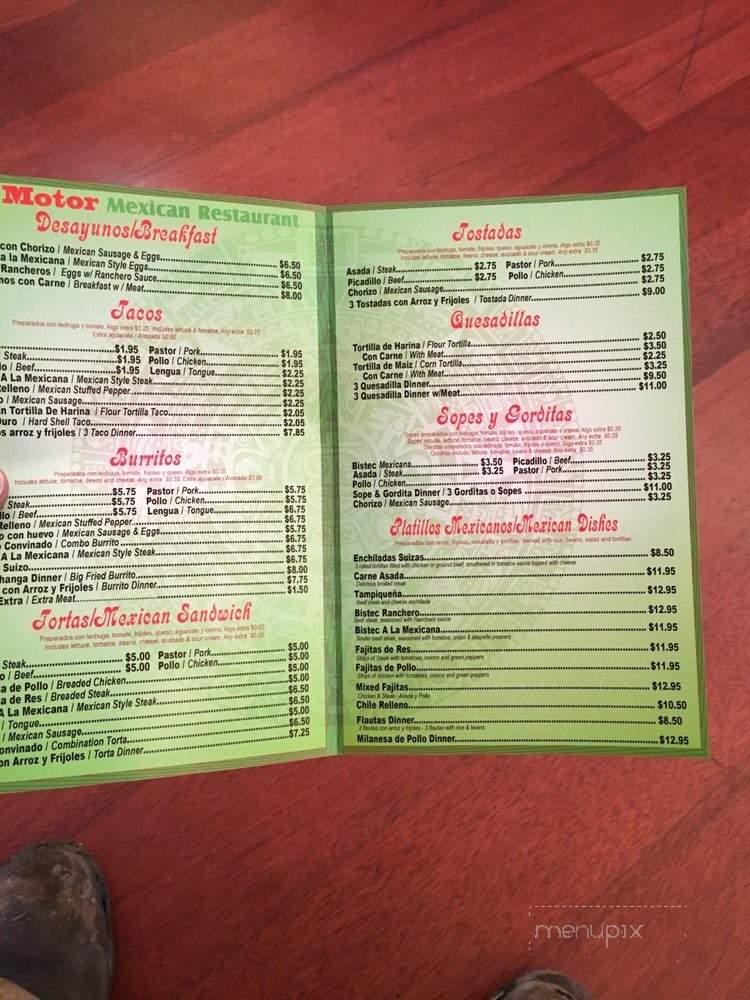 Motor Mexican Restaurant
Desayunos/Breakfast
con Chorizo / Mexican Sausage & Eggs $6.50
a la Mexicana / Mexican Style Eggs $6.50
Rancheros / Eggs w/ Ranchero Sauce $6.50
nos con Carne / Breakfast w / Meat $8.00
Tacos
Preparados con lechuga y tomate. Algo extra $0.25 Includes lettuce & tomatoe, Any extra $0.25
Extra aguacate / Avocado $0.50
$1.95 Pastor / Pork $1.95
/ Steak $1.95 Pollo / Chicken $1.95
lo / Beef $1.95 Lengua / Tongue $2.25
A La Mexicana / Mexican Style Steak $2.25
Relleno / Mexican Stuffed Pepper $2.25
o / Mexican Sausage $2.25
n Tortilla De Harina / Flour Tortilla Taco $2.05
Duro / Hard Shell Taco $2.05
os arroz y frijoles / 3 Taco Dinner $7.85
Burritos
Preparados con lechuga, tomate, frijoles y queso. Algo extra $0.35
Includes lettuce, tomatoe, beans and cheese. Any extra $0.35. Extra aguacate / Avocado $1.00
$5.75 Pastor / Pork $5.75
/ Steak $5.75 Pollo / Chicken $5.75
llo / Beef $5.75 Lengua / Tongue $6.75
Relleno / Mexican Stuffed Pepper $6.75
o con huevo / Mexican Sausage & Eggs $5.75
o Convinado / Combo Burrito $6.75
A La Mexicana / Mexican Style Steak $6.75
Suizo $6.75
hanga Dinner / Big Fried Burrito $8.00
con Arroz y Frijoles / Burrito Dinner $7.75
Extra / Extra Meat $1.50
Tortas/Mexican Sandwich
Preparados con lechuga, tomate, frijoles, queso, aguacate y crema. Algo extra $0.50
Includes lettuce, tomatoe, beans, cheese, avocado & sour cream. Any extra $0.50
$5.00
/ Steak $5.00 Pastor / Pork $5.00
o / Beef $5.00 Pollo / Chicken $5.00
a de Pollo / Breaded Chicken $5.00
a de Res / Breaded Steak $6.50
A La Mexicana / Mexican Style Steak $6.50
/ Tongue $5.00
/ Mexican Sausage $6.50
onvinado / Combination Torta $7.25
on Arroz y Frijoles / Torta Dinner
Tostadas
Preparados con lechuga, tomate, frijoles, queso, aguacate y crema. Algo extra $0.35
Includes lettuce, tomatoe, beans, cheese, avocado & sour cream. Any extra $0.35
Asada / Steak $2.75 Pastor / Pork $2.75
Picadillo / Beef $2.75 Pollo / Chicken $2.75
Chorizo / Mexican Sausage $2.75
3 Tostadas con Arroz y Frijoles / Tostada Dinner $9.00
Quesadillas
Tortilla de Harina / Flour Tortilla $2.50
Con Carne / With Meat $3.50
Tortilla de Maiz / Corn Tortilla $2.25
Con Carne / With Meat $3.25
3 Quesadilla Dinner $9.50
3 Quesadilla Dinner w/Meat $11.00
Sopes y Gorditas
Sopes preparados con lechuga, tomate, frijoles, queso, aguacate y crema. Algo extra $0.35
Sopes include, lettuce, tomatoe, beans, cheese, avocado & sour cream. Any extra $0.35
Gorditas preparados con lechuga, tomate, frijoles, queso, aguacate y crema. Algo extra $0.35
Gorditas include, lettuce, tomatoe, beans, cheese, avocado & sour cream. Any extra $0.35
Bistec Mexicana $3.50 Picadillo / Beef $3.25
Asada / Steak $3.25 Pastor / Pork $3.25
Pollo / Chicken $3.25
Sope & Gordita Dinner / 3 Gorditas o Sopes $11.00
Chorizo / Mexican Sausage $3.25
Platillos Mexicanos/Mexican Dishes
Preparados con arroz, frijoles, ensalada y tortillas. Served with rice, beans, salad and tortillas.
Enchiladas Suizas $8.50
3 rolled tortillas filled with chicken or ground beef, smothered in tomatoe sauce topped with cheese
Carne Asada $11.95
Delicious broiled steak
Tampiqueña $12.95
Beef steak and cheese enchilada
Bistec Ranchero $12.95
Beef steak, seasoned with Ranchero sauce
Bistec A La Mexicana $11.95
Tender beef steak, seasoned with tomatoe, onion & jalapeño peppers
Fajitas de Res $11.95
Strips of Steak with tomatoes, onions and green peppers
Fajitas de Pollo $11.95
Strips of chicken with tomatoes, onions and green peppers
Mixed Fajitas $12.95
Chicken & Steak - Asada y Pollo
Chile Relleno $10.50
Flautas Dinner $8.50
3 flautas con arroz y frijoles - 3 flautas with rice & beans
Milanesa de Pollo Dinner $12.95
menupix